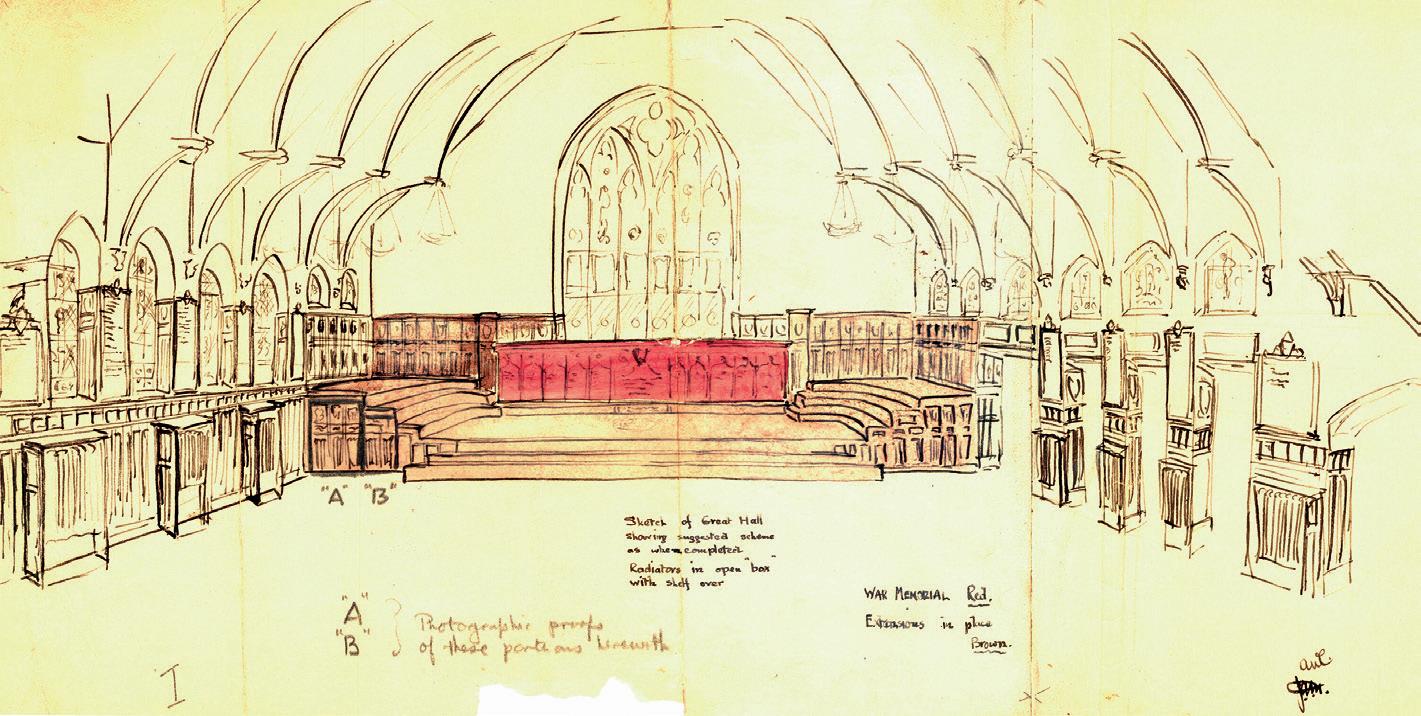 "A" "B"
Sketch of Great Hall
Showing suggested scheme
as when completed
Radiators in open "box"
with shelf over
"A"
"B"
Photographic proofs
of these portions herewith
WAR MEMORIAL Red.
Extensions in place
Brown.
I